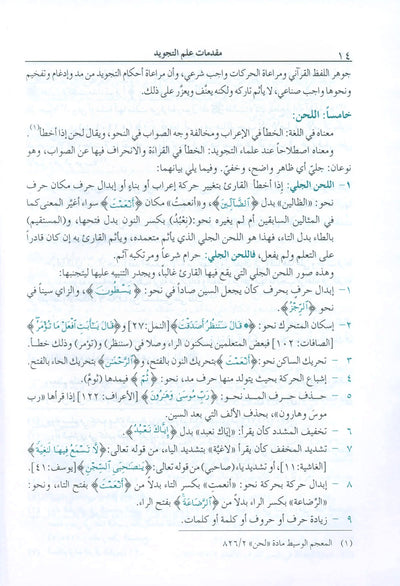 ١٤ مقدمات علم التجويد
جوهر اللفظ القرآني ومراعاة الحركات واجب شرعي، وأن مراعاة أحكام التجويد من مد وإدغام وتفخيم
ونحوها واجب صناعي، لا يأثم تاركه ولكنه يعنَّف ويعزَّر على ذلك.
خامساً: اللحن:
معناه في اللغة: الخطأ في الإعراب ومخالفة وجه الصواب في النحو، ويقال لحن إذا أخطأ(١).
ومعناه اصطلاحاً عند علماء التجويد: الخطأ في القراءة والانحراف فيها عن الصواب، وهو
نوعان: جليّ أي ظاهر واضح، وخفيّ. وفيما يلي بيانهما:
١ - اللحن الجلي: إذا أخطأ القارئ بتغيير حركة إعراب أو بناءٍ أو إبدال حرف مكان حرف
نحو: «الظالين» بدل ﴿الضَّالِّينَ﴾، و«أنعمتُ» مكان ﴿أَنْعَمْتَ﴾ سواء أغيَّر المعنى كما
في المثالين السابقين أم لم يغيره نحو: (نِعْبُدُ) بكسر النون بدل فتحها، و(المستقيم)
بالطاء بدل التاء، فهذا هو اللحن الجلي الذي يأثم متعمده، ويأثم القارئ به إن كان قادراً
على التعلم ولم يفعل، فاللحن الجلي: حرام شرعاً ومرتكبه آثم.
وهذه صور اللحن الجلي التي يقع فيها القارئ غالباً، ويجدر التنبيه عليها ليتجنبها:
١ - إبدال حرفٍ بحرف كأن يجعل السين صاداً في نحو: ﴿يَسْطُونَ﴾، والزاي سيناً في
نحو ﴿الرِّجْزُ﴾.
٢ - إسكان المتحرك نحو: ﴿قَالَ سَنَنظُرُ أَصَدَقْتَ﴾ [النمل: ٢٧] و﴿قَالَ يَٰٓأَبَتِ ٱفْعَلْ مَا تُؤْمَرُ﴾
[الصافات: ١٠٢] فبعض المتعلمين يسكنون الراء وصلا في (سننظر) و(تؤمر) وذلك خطأ.
٣ - تحريك الساكن نحو: ﴿أَنْعَمْتَ﴾ بتحريك النون بالفتح، و﴿الرَّحْمَٰنِ﴾ بتحريك الحاء بالفتح.
٤ - إشباع الحركة بحيث يتولد منها حرف مد، نحو: ﴿ثُمَّ﴾ فيمدها (ثُومَّ).
٥ - حذف حرف المدّ نحو: ﴿رَبِّ مُوسَىٰ وَهَٰرُونَ﴾ [الأعراف: ١٢٢] إذا قرأها «رب
موسَ وهارون»، بحذف الألف التي بعد السين.
٦ - تخفيف المشدد كأن يقرأ: «إيَاك نعبد» بدل ﴿إِيَّاكَ نَعْبُدُ﴾.
٧ - تشديد المخفف كأن يقرأ «لاغيَّة» بتشديد الياء، من قوله تعالى: ﴿لَّا تَسْمَعُ فِيهَا لَٰغِيَةً﴾
[الغاشية: ١١]، أو تشديد ياء (صاحبي) من قوله تعالى: ﴿يَٰصَٰحِبَيِ ٱلسِّجْنِ﴾ [يوسف: ٤١].
٨ - إبدال حركة بحركة نحو: «أنعمتِ» بكسر التاء بدلاً من ﴿أَنْعَمْتَ﴾ بفتح التاء، ونحو:
«الرِّضاعة» بكسر الراء بدلاً من ﴿الرَّضَاعَةَ﴾ بفتح الراء.
٩ - زيادة حرف أو حروف أو كلمة أو كلمات.
(١) المعجم الوسيط مادة «لحن» ٨٢٦/٢.